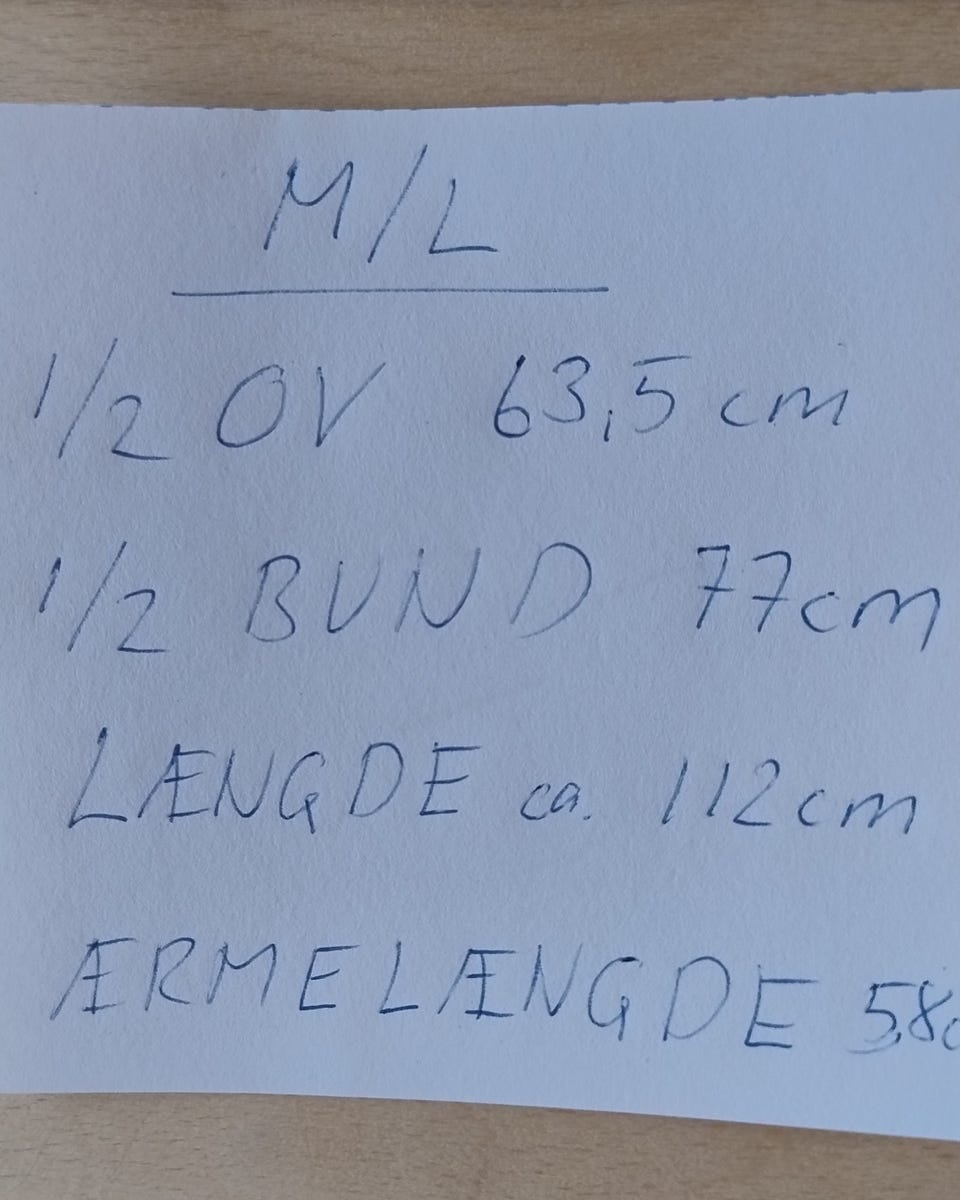 M/L
1/2 OV 63,5 cm
1/2 BUND 77cm
LÆNGDE ca. 112cm
ÆRMELÆNGDE 58c